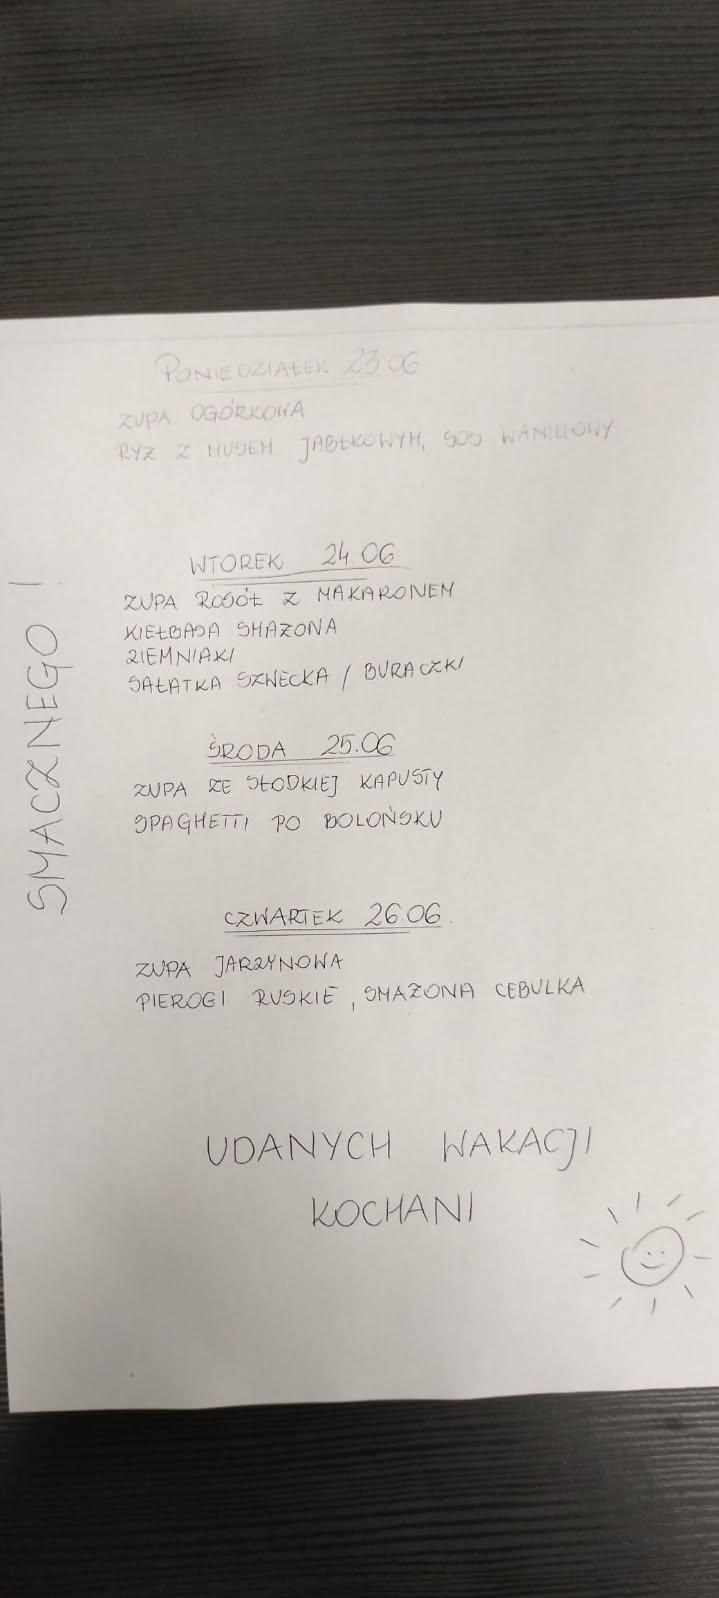 PONIEDZIAŁEK 23.06
ZUPA OGÓRKOWA
RYŻ Z MUSEM JABŁKOWYM, SOS WANILIOWY
WTOREK 24.06
ZUPA ROSÓŁ Z MAKARONEM
KIEŁBASA SMAŻONA
ZIEMNIAKI
SAŁATKA SZWECKA / BURACZKI
ŚRODA 25.06
ZUPA ZE SŁODKIEJ KAPUSTY
SPAGHETTI PO BOLOŃSKU
CZWARTEK 26.06.
ZUPA JARZYNOWA
PIEROGI RUSKIE, SMAŻONA CEBULKA
UDANYCH WAKACJI
KOCHANI
SMACZNEGO!